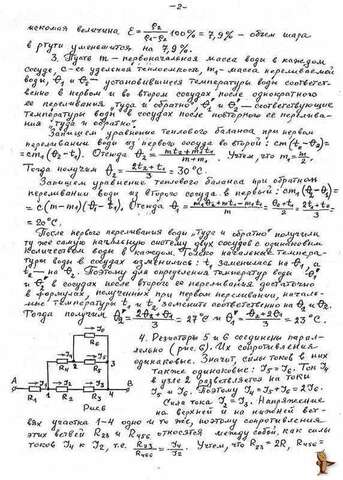 -2-
искомая величина ε = ρ₂/(ρ₁-ρ₂) 100% = 7,9% - объем шара
в ртути уменьшится на 7,9%.
3. Пусть m - первоначальная масса воды в каждом
сосуде, c - ее удельная теплоемкость, m₁ - масса переливаемой
воды, θ₁ и θ₂ - установившиеся температуры воды соответст-
венно в первом и во втором сосудах после однократного
ее переливания "туда и обратно", θ₁* и θ₂* - соответствующие
температуры воды в сосудах после повторного ее перелива-
ния "туда и обратно".
Запишем уравнение теплового баланса при первом
переливании воды из первого сосуда во второй:
Отсюда Учтем, что m₁ = m/2.
Тогда получим = 30°C.
Запишем уравнение теплового баланса при обратном
переливании воды из второго сосуда в первый:
Отсюда
= 20°C.
После первого переливания воды "туда и обратно" получили
ту же самую начальную систему двух сосудов с одинаковым
количеством воды в каждом. Только начальные темпера-
туры воды в сосудах изменились: t₁ заменилась на θ₁, а
t₂ - на θ₂. Поэтому для определения температур воды θ₁*
и θ₂* в сосудах после второго ее переливания достаточно
в формулах, полученных при первом переливании, началь-
ные температуры t₁ и t₂ заменить соответственно на θ₁ и θ₂.
Тогда получим = 27°C и = 23°C.
4. Резисторы 5 и 6 соединены парал-
лельно (рис. 6). Их сопротивления
одинаковые. Значит, силы токов в них
также одинаковые: I₅ = I₆. Ток I₄
в узле 2 разветвляется на токи
I₅ и I₆. Поэтому I₄ = I₅ + I₆ = 2I₆.
Сила тока Напряжение
на верхней и на нижней вет-
A R₁ R₂ R₃ R₄ R₅ R₆ B
Рис 6
вях участка 1-4 одно и то же, поэтому сопротивления
этих ветвей R₂₃ и R₄₅₆ относятся между собой, как силы
токов I₄ к I₂, т.е. R₂₃/R₄₅₆ = I₄/I₂. Учтем, что R₂₃ = 2R, R₄₅₆ =